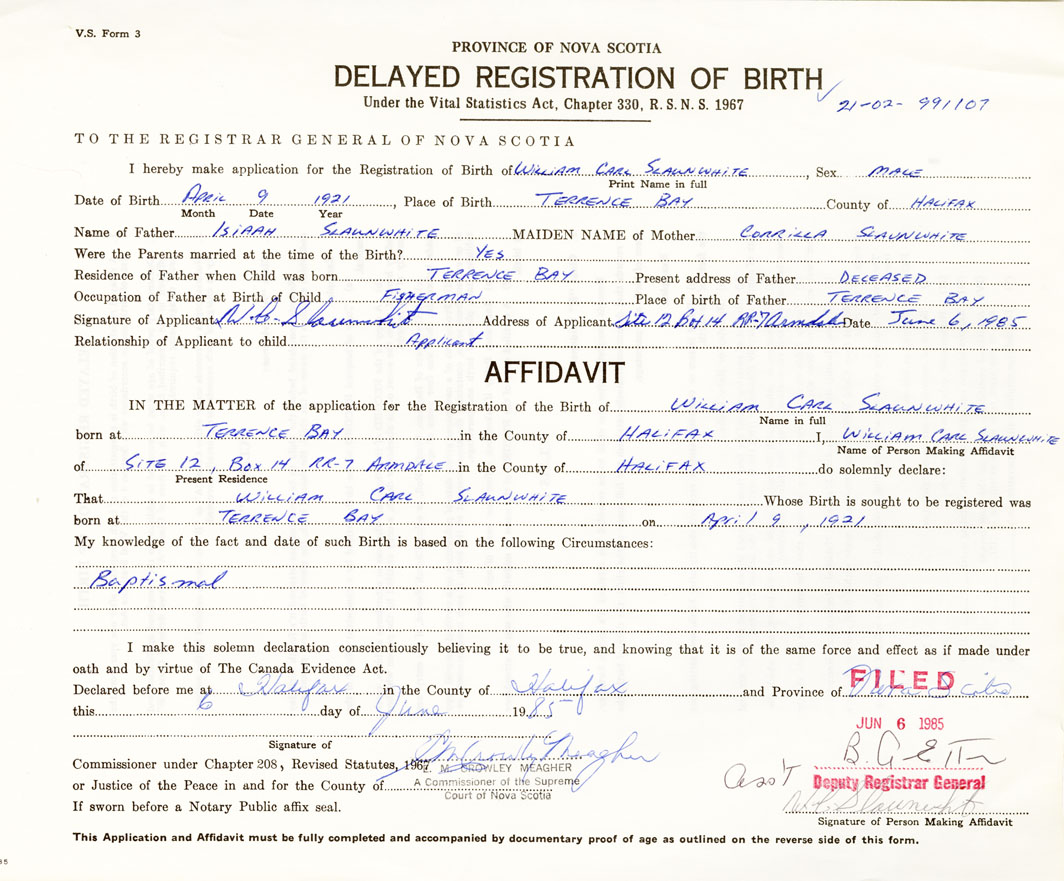 V.S. Form 3
PROVINCE OF NOVA SCOTIA
DELAYED REGISTRATION OF BIRTH
Under the Vital Statistics Act, Chapter 330, R.S.N.S. 1967
21-02- 991107
TO THE REGISTRAR GENERAL OF NOVA SCOTIA
I hereby make application for the Registration of Birth of WILLIAM CARL SLAUNWHITE, Sex MALE
Print Name in full
Date of Birth APRIL 9 1921, Place of Birth TERRENCE BAY County of HALIFAX
Month Date Year
Name of Father ISIAAH SLAUNWHITE MAIDEN NAME of Mother CORRILLA SLAUNWHITE
Were the Parents married at the time of the Birth? YES
Residence of Father when Child was born TERRENCE BAY Present address of Father DECEASED
Occupation of Father at Birth of Child FISHERMAN Place of birth of Father TERRENCE BAY
Signature of Applicant W.C. Slaunwhite Address of Applicant Site 12 Box 14 RR-7 Armdale Date June 6, 1985
Relationship of Applicant to child Applicant
AFFIDAVIT
IN THE MATTER of the application for the Registration of the Birth of WILLIAM CARL SLAUNWHITE
Name in full
born at TERRENCE BAY in the County of HALIFAX I, WILLIAM CARL SLAUNWHITE
Name of Person Making Affidavit
of SITE 12, BOX 14 RR-7 ARMDALE in the County of HALIFAX do solemnly declare:
Present Residence
That WILLIAM CARL SLAUNWHITE Whose Birth is sought to be registered was
born at TERRENCE BAY on April 9, 1921
My knowledge of the fact and date of such Birth is based on the following Circumstances:
Baptismal
I make this solemn declaration conscientiously believing it to be true, and knowing that it is of the same force and effect as if made under
oath and by virtue of The Canada Evidence Act.
Declared before me at Halifax in the County of Halifax and Province of Nova Scotia
FILED
this 6 day of June 1985
JUN 6 1985
Signature of
Commissioner under Chapter 208, Revised Statutes, 1967
Crowley Meagher
M. CROWLEY MEAGHER
A Commissioner of the Supreme
Court of Nova Scotia
or Justice of the Peace in and for the County of
Ass't Deputy Registrar General
If sworn before a Notary Public affix seal.
W.C. Slaunwhite
Signature of Person Making Affidavit
This Application and Affidavit must be fully completed and accompanied by documentary proof of age as outlined on the reverse side of this form.